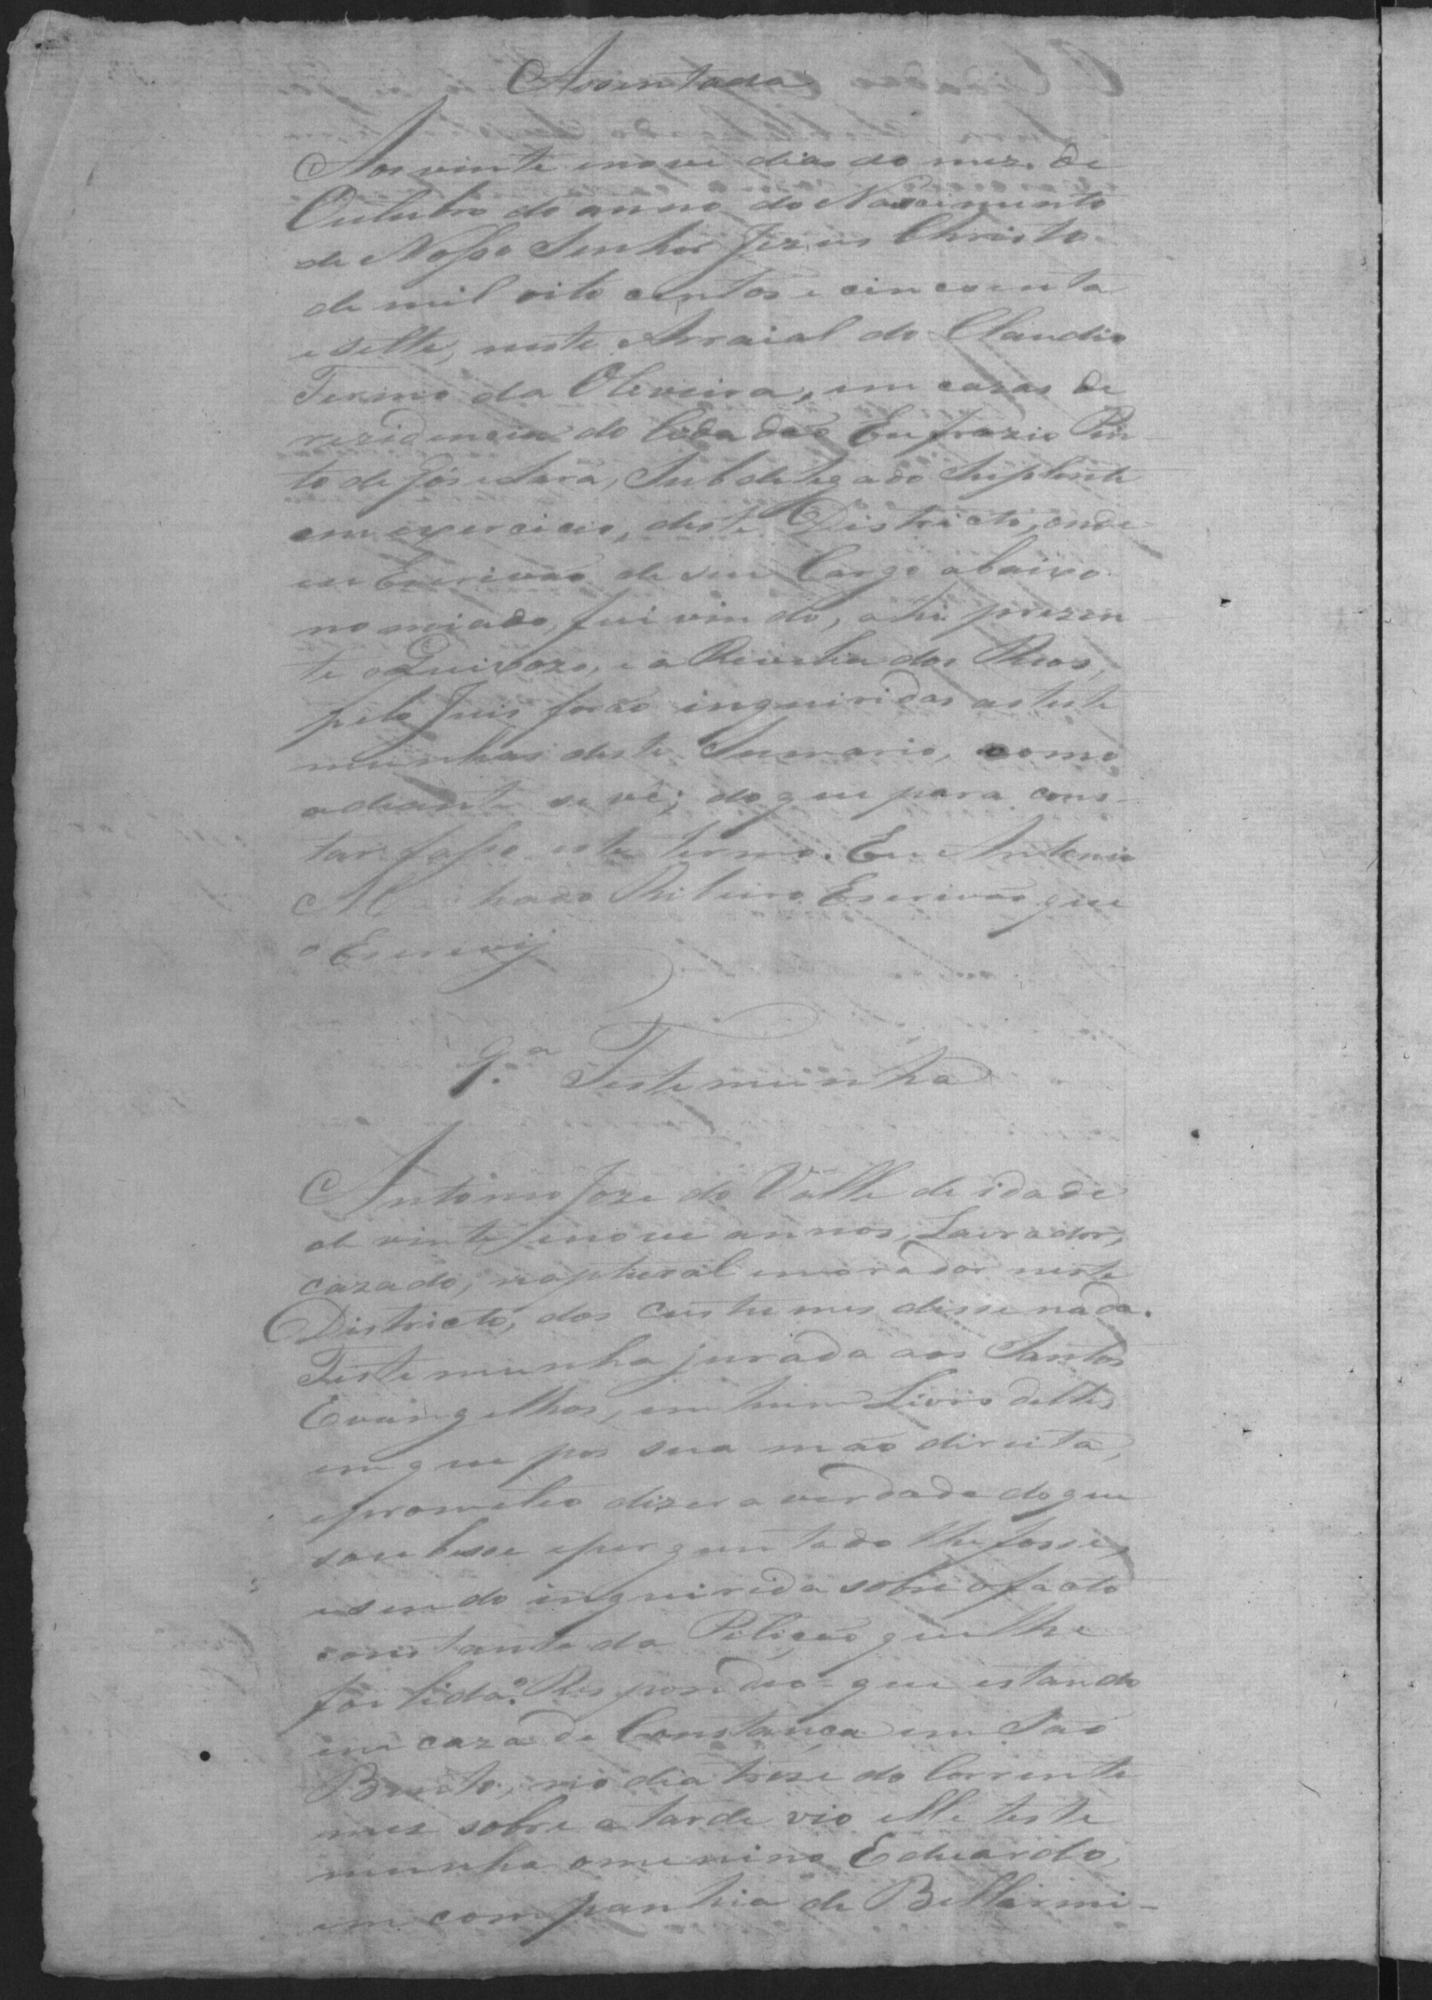 Assentada
Aos vinte enove dias do mez de
Outubro do anno do Nascimento
de Nosso Senhor Jezus Christo
de mil oito centos e cincoenta
esette, neste Arraial do Claudio
Termo da Oliveira, em cazas de
rezidencia do Cidadão Eufrazio Pin-
to de Góes Lara, Subdelegado Suplente
em exercicio, deste Districto, onde
eu Escrivão de seu Cargo abaixo
nomiado, fui vindo, ahi prezen-
te o Queixozo, e a Revelia dos Reos,
pelo Juis forão inquiridas as teste
munhas deste Sumario, como
adiante se vê; do que para cons-
tar fasso este termo. Eu Antonio
Machado Ribeiro Escrivão que
o Escrevij
9.ª Testemunha
Antonio Joze do Valle de idade
de vinte enove annos, Lavrador,
cazado, naptural emorador neste
Districto, dos custumes disse nada.
Testemunha jurada aos Santos
Evangelhos, em hum Livro delles
em que pos sua mão direita,
eprometeo dizer a verdade do que
soubesse eperguntado lhe fosse,
esendo inquirida sobre o facto
constante da Petição que lhe
foi lida? Respondeo = que estando
em caza de Constança em São
Bento, no dia treze do Corrente
mez sobre a tarde vio elle teste
munha omenino Eduardo,
em companhia de Bellarmi-